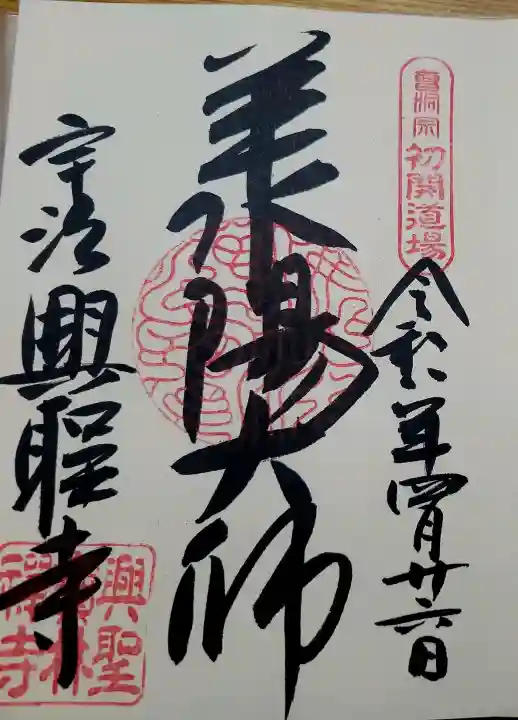 曹洞宗初開道場
令和 年四月廿六日
承陽大師
宇治
興聖寺
興聖
寶林
禪寺